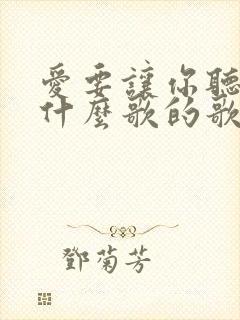 愛要讓你聽
什麼歌的歌
鄧菊芳